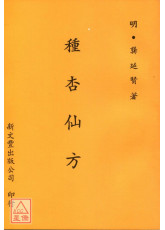 明•龔廷賢著
種杏仙方
新文豐出版公司 印行